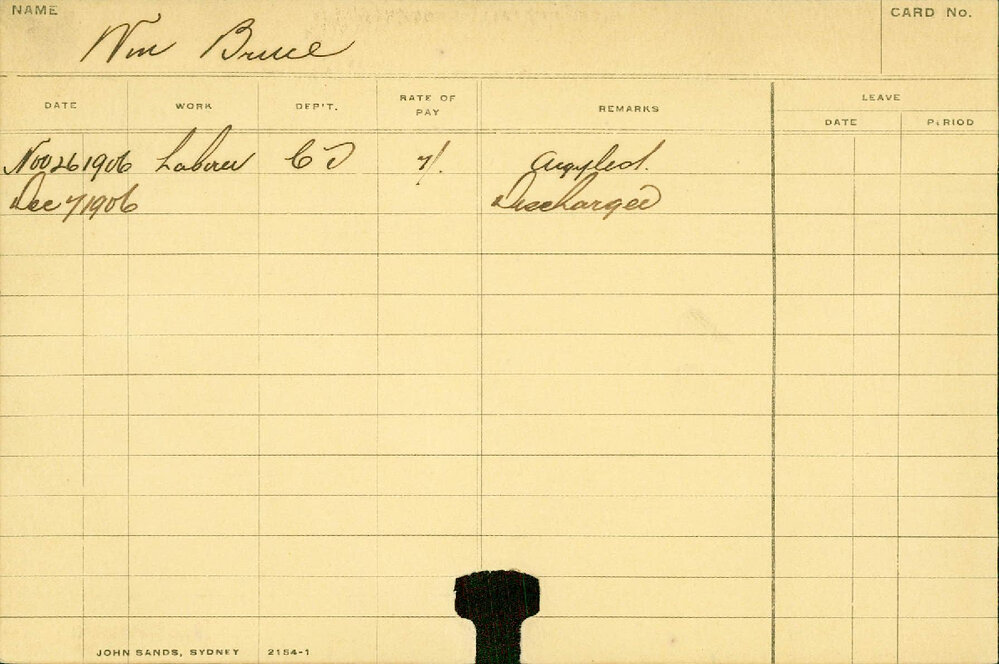 NAME
CARD No.
Wm Bruce
DATE WORK DEP'T. RATE OF PAY REMARKS LEAVE
DATE PERIOD
Nov 26 1906 Laborer CD 7/. Argyle St.
Dec 7 1906 Discharged
JOHN SANDS, SYDNEY 2154-1